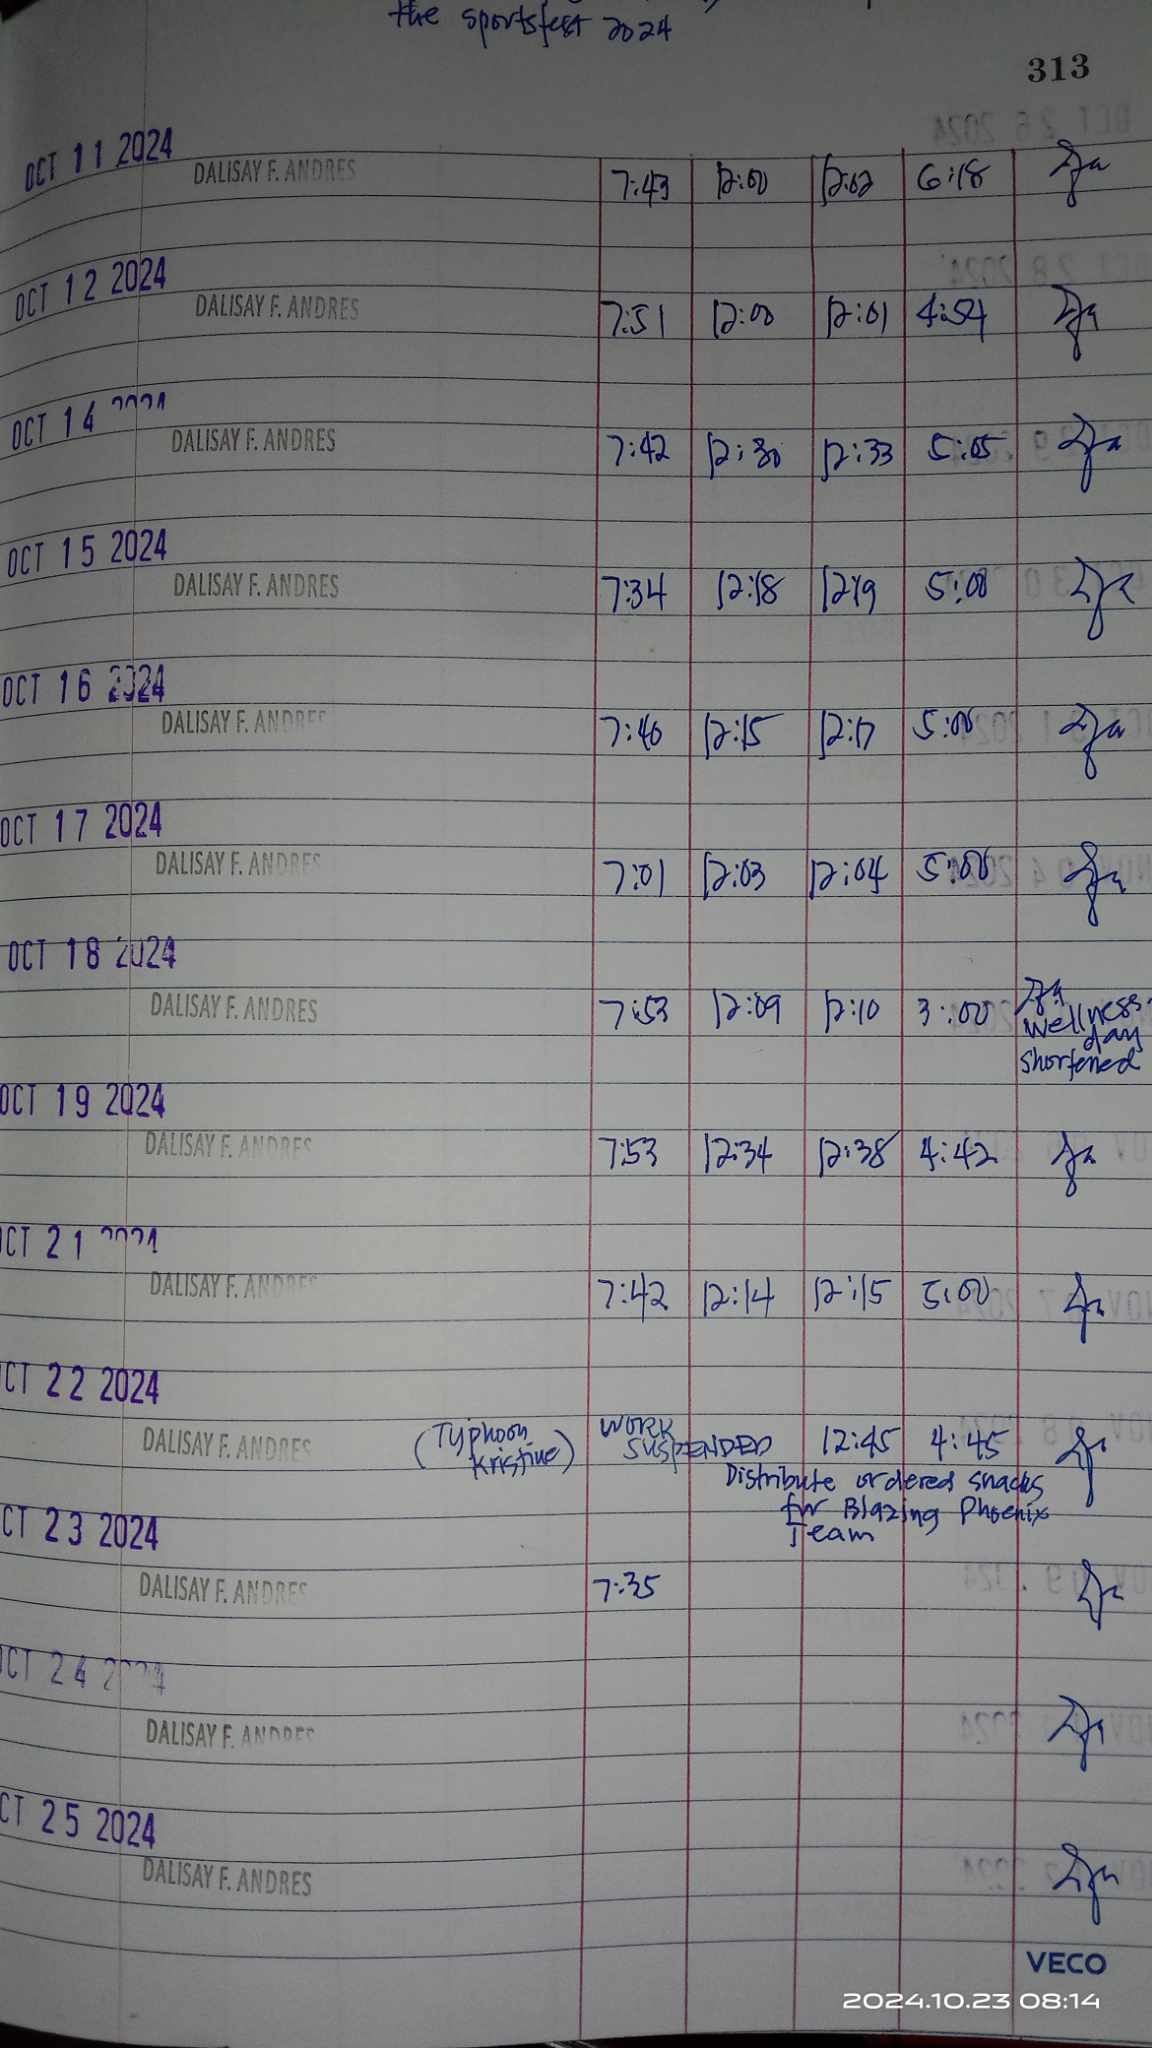 the sportsfest 2024
313
OCT 11 2024
DALISAY F. ANDRES 7:43 12:00 12:02 6:18
OCT 12 2024
DALISAY F. ANDRES 7:51 12:00 12:01 4:54
OCT 14 2024
DALISAY F. ANDRES 7:42 12:30 12:33 5:05
OCT 15 2024
DALISAY F. ANDRES 7:34 12:18 12:19 5:00
OCT 16 2024
DALISAY F. ANDRES 7:46 12:15 12:17 5:00
OCT 17 2024
DALISAY F. ANDRES 7:01 12:03 12:04 5:00
OCT 18 2024
DALISAY F. ANDRES 7:53 12:09 12:10 3:00
wellness
day
shortened
OCT 19 2024
DALISAY F. ANDRES 7:53 12:34 12:38 4:42
OCT 21 2024
DALISAY F. ANDRES 7:42 12:14 12:15 5:00
CT 22 2024
DALISAY F. ANDRES (Typhoon WORK 12:45 4:45
Kristine) SUSPENDED
Distribute ordered snacks
for Blazing Phoenix
Team
CT 23 2024
DALISAY F. ANDRES 7:35
CT 24 2024
DALISAY F. ANDRES
CT 25 2024
DALISAY F. ANDRES
VECO
2024.10.23 08:14